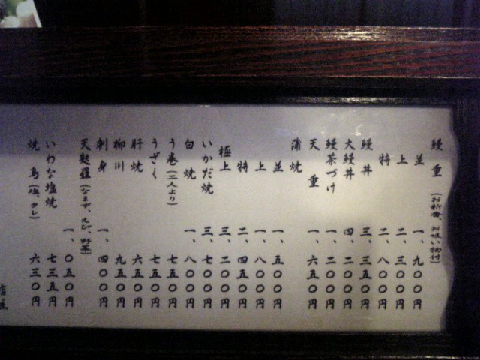 鰻重 (お新香、お吸い物付)
並 一、九〇〇円
上 二、三〇〇円
特 二、八〇〇円
鰻丼 三、三五〇円
大鰻丼 四、二〇〇円
鰻茶づけ 一、八五〇円
天重 一、六五〇円
蒲焼
並 一、五〇〇円
上 一、八〇〇円
特 二、四五〇円
極上 三、二〇〇円
いかだ焼 三、七〇〇円
白焼 一、八〇〇円
う巻 (二人より) 七五〇円
うざく 七五〇円
肝焼 六五〇円
柳川 九五〇円
刺身 一、四〇〇円
天麩羅
いわな塩焼 一、〇五〇円
七三五円
焼鳥 (塩、タレ) 六三〇円